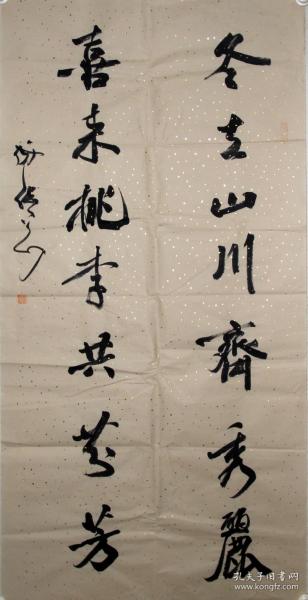 冬去山川齊秀麗
喜来桃李共芬芳
孔夫子旧书网